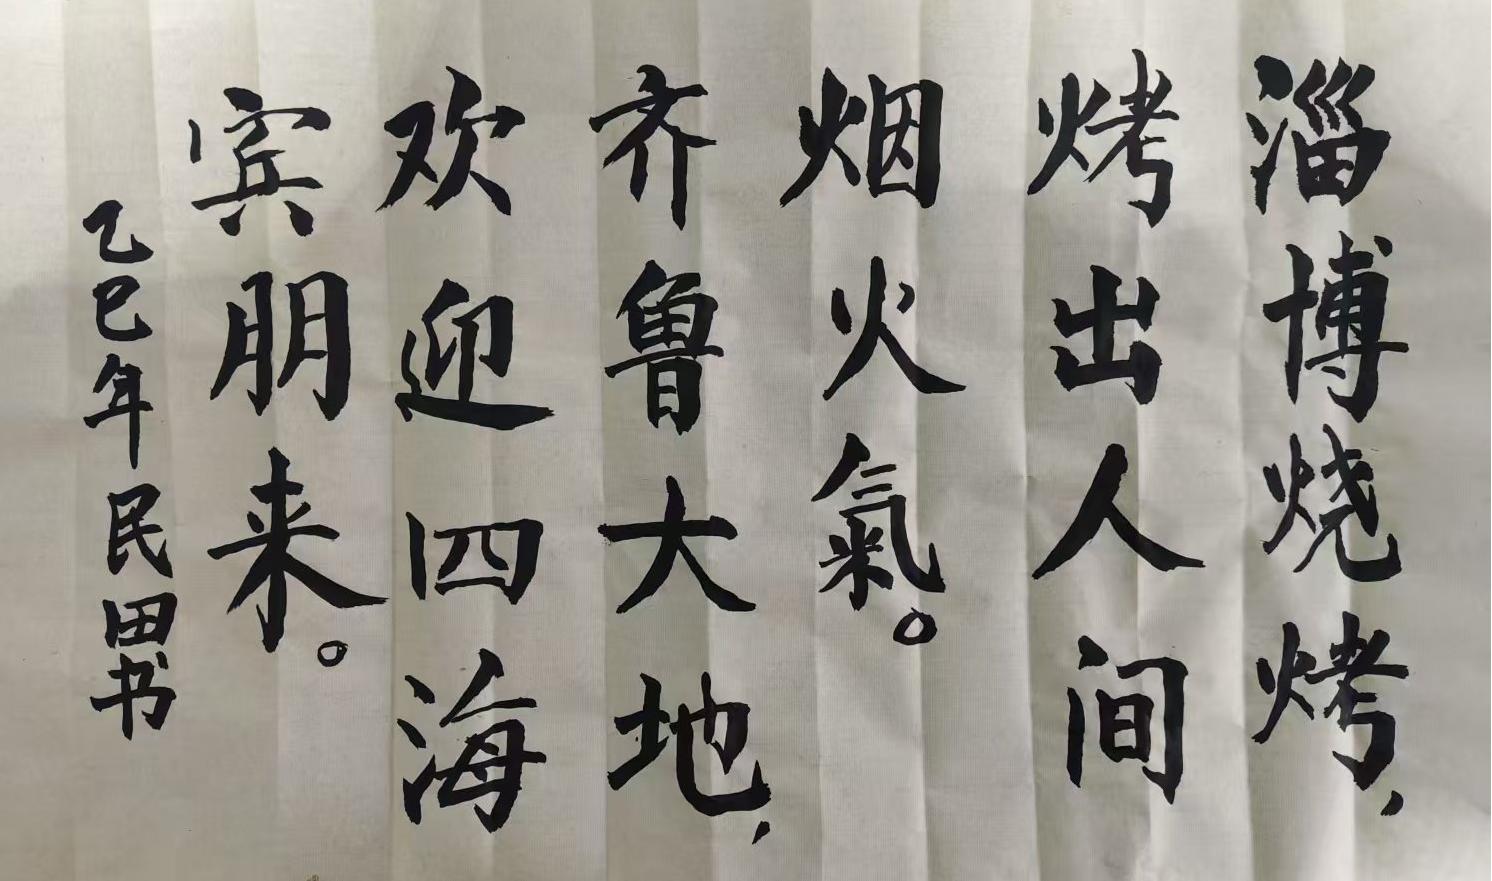 淄博烧烤，
烤出人间
烟火氣。
齐鲁大地，
欢迎四海
宾朋来。
乙巳年 民田书